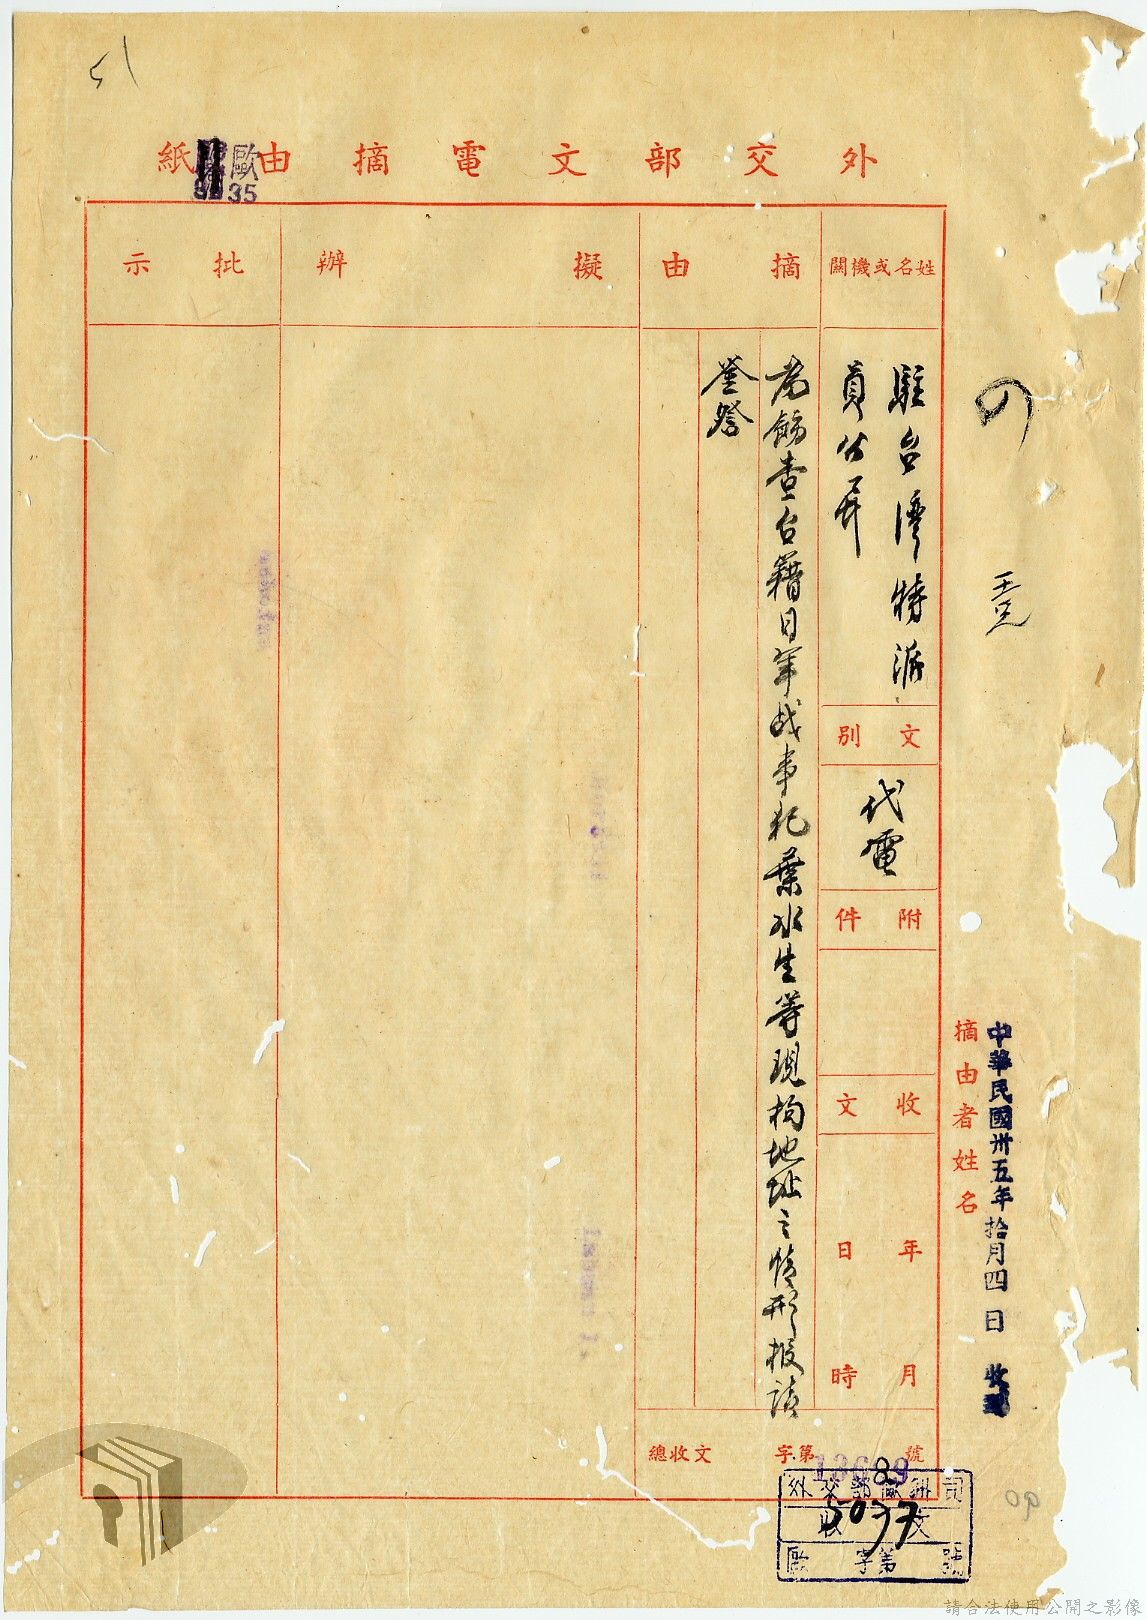 51
外交部文電摘由紙
歐
35
姓名或機關
摘由
擬辦
批示
駐台灣特派
員公署
文別
代電
附件
收文
年
月
日
時
為飭查台籍日軍战事犯葉水生等現拘地址之情形報請
鉴詧
總收文
字第
號
13689
外交部歐洲司
收文
5037
歐字第號
摘由者姓名
中華民國卅五年拾月四日收到
請合法使用公開之影像